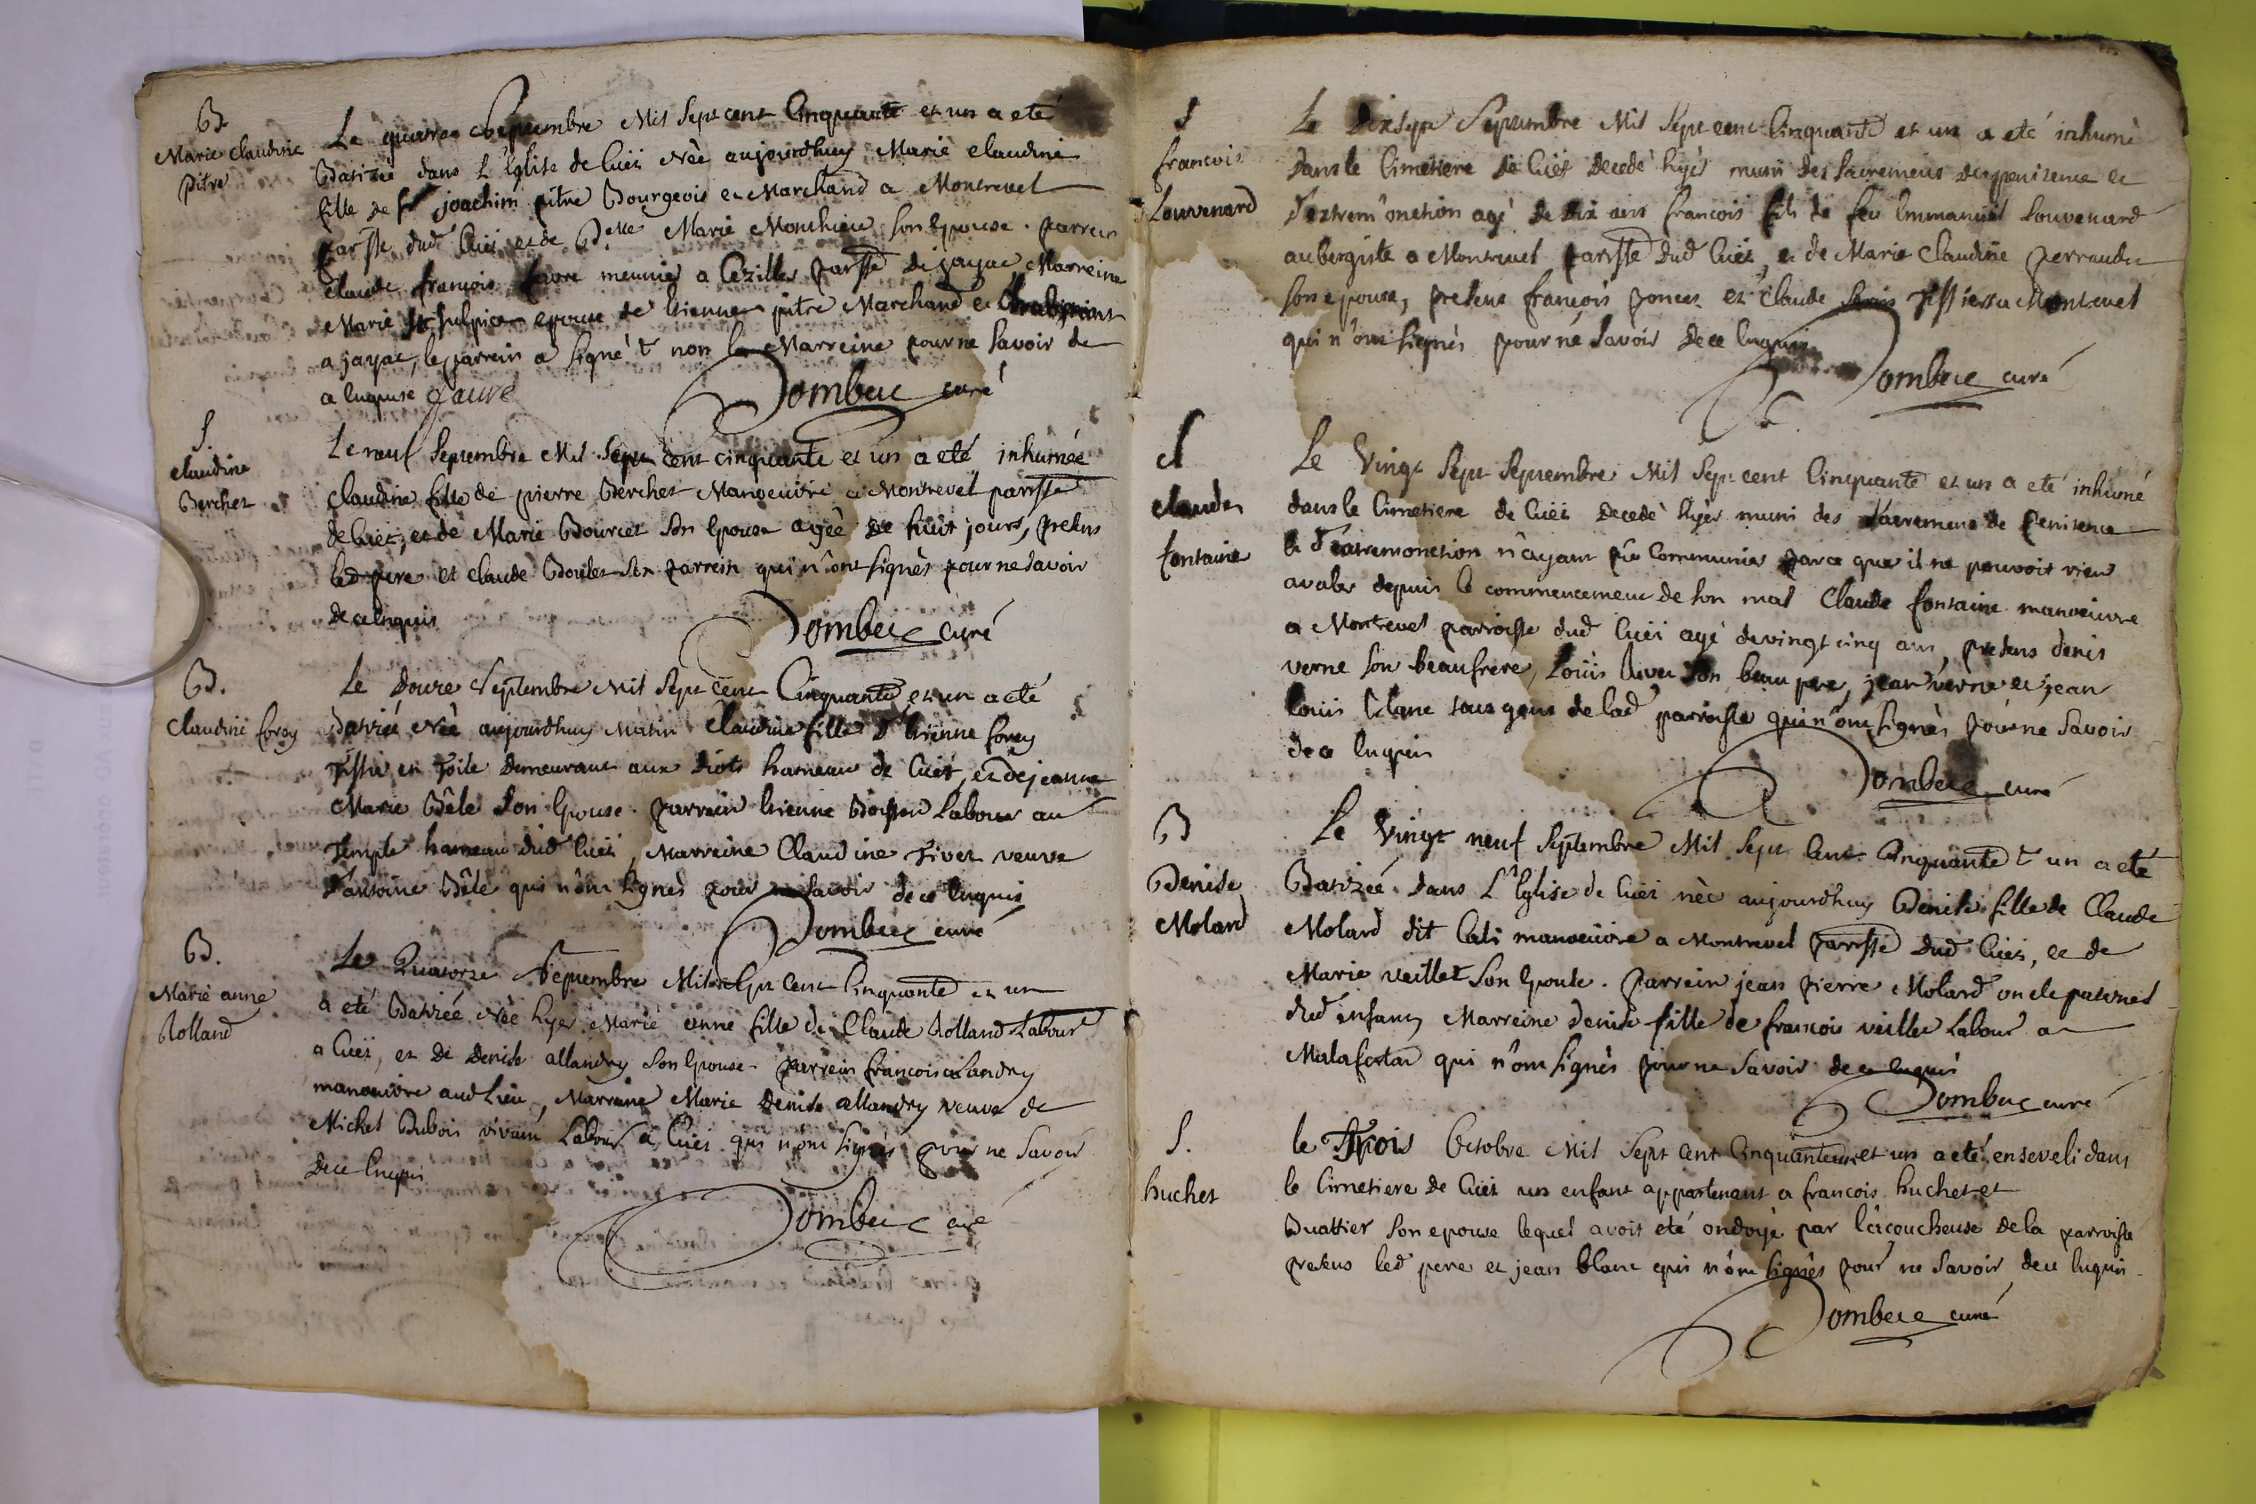 B.
Marie Claudine
pitre
Le quatre Septembre Mil Sept cent Cinquante et un a eté
Batizée dans L'Eglise de Cuët Née aujourdhuy Marie Claudine
fille de Sr joachim pitre Bourgeois et Marchand a Montrevel
parsse dud Cuët et de Delle Marie Monthieu son Epouse. parrein
Claude francois favre meunier a Cezille parsse de jayac Marreine
Marie St Sulpice epouse de Etienne pitre Marchand et
a jayac, le parrein a signé & non la Marreine pour ne savoir de
a enquise favre Dombeic curé
S.
claudine
Berchet
Le neuf Septembre Mil Sept cent cinquante et un a eté inhumée
Claudine fille de pierre Berchet Manoeuvre a Montrevel parsse
de Cuët, et de Marie Bourcet son Epouse agée de huit jours, presens
led pere et claude Boulet son parrein qui n'ont signés pour ne savoir
de ce enquis Dombeic curé
B.
Claudine forey
Le Douze Septembre Mil Sept cent Cinquante et un a eté
Batizée Née aujourdhuy Matin Claudine fille d'Etienne forey
Tissier en Toile Demeurant aux Diots hameau de Cuët, et de jeanne
Marie Bêle son Epouse. parrein Etienne Boisson Labour au
Temple hameau dud Cuët, Marreine Claudine Tivet veuve
d'antoine Bêle qui n'ont signés pour ne savoir de ce enquis
Dombeic curé
B.
Marie anne
Rolland
Le Quatorze Septembre Mil Sept Cent Cinquante et un
a eté Batizée Née hyer Marie anne fille de Claude Rolland Labour
a Cuët, et de Denise allandry son Epouse. parrein francois allandry
manoeuvre aud Lieu, Marreine Marie Denise allandry veuve de
Michel Dubois vivant Labour a Cuët qui n'ont signés pour ne savoir
de ce Enquis
Dombeic curé
S
francois
Louvenard
Le Dix sept Septembre Mil Sept cent Cinquante et un a eté inhumé
dans le Cimetiere de Cuët decedé hyer muni des sacremens de penitence et
d'extrem'onction agé de dix ans francois fils de feu Emmanuel Louvenard
aubergiste a Montrevel parsse dud Cuët, et de Marie Claudine perraud
son epouse, presens francois poncet et claude Tissier a Montrevel
qui n'ont signés pour ne savoir de ce enquis
Dombeic curé
S
claude
fontaine
Le Vingt Sept Septembre Mil Sept cent Cinquante et un a eté inhumé
dans le Cimetiere de Cuët decedé hyer muni des sacremens de penitence
& d'extremonction n'ayant pû Communier parce que il ne pouvoit rien
avaler depuis le commencement de son mal Claude fontaine manoeuvre
a Montrevel parroisse dud Cuët agé de vingt cinq ans, presens denis
verne son beaufrere, Louis son beau pere, jean verne et jean
Louis Blanc tous gens de lad parroisse qui n'ont signés pour ne savoir
de ce Enquis
Dombeic curé
B
Denise
Molard
Le Vingt neuf Septembre Mil Sept Cent Cinquante & un a eté
Batizée dans L'Eglise de Cuët née aujourdhuy Denise fille de Claude
Molard dit Cati manoeuvre a Montrevel parsse dud Cuët, et de
Marie veillet son Epouse. parrein jean pierre Molard oncle paternel
dud enfant Marreine denise fille de francois veillet Labour a
Malafretaz qui n'ont signés pour ne savoir de ce enquis
Dombeic curé
S.
huchet
le Trois Octobre Mil Sept Cent Cinquante et un a eté enseveli dans
le Cimetiere de Cuët un enfant appartenant a francois huchet et
Buattier son epouse lequel avoit eté ondoyé par l'acoucheuse de la parroisse
presens led pere et jean blanc qui n'ont signés pour ne savoir de ce enquis
Dombeic curé